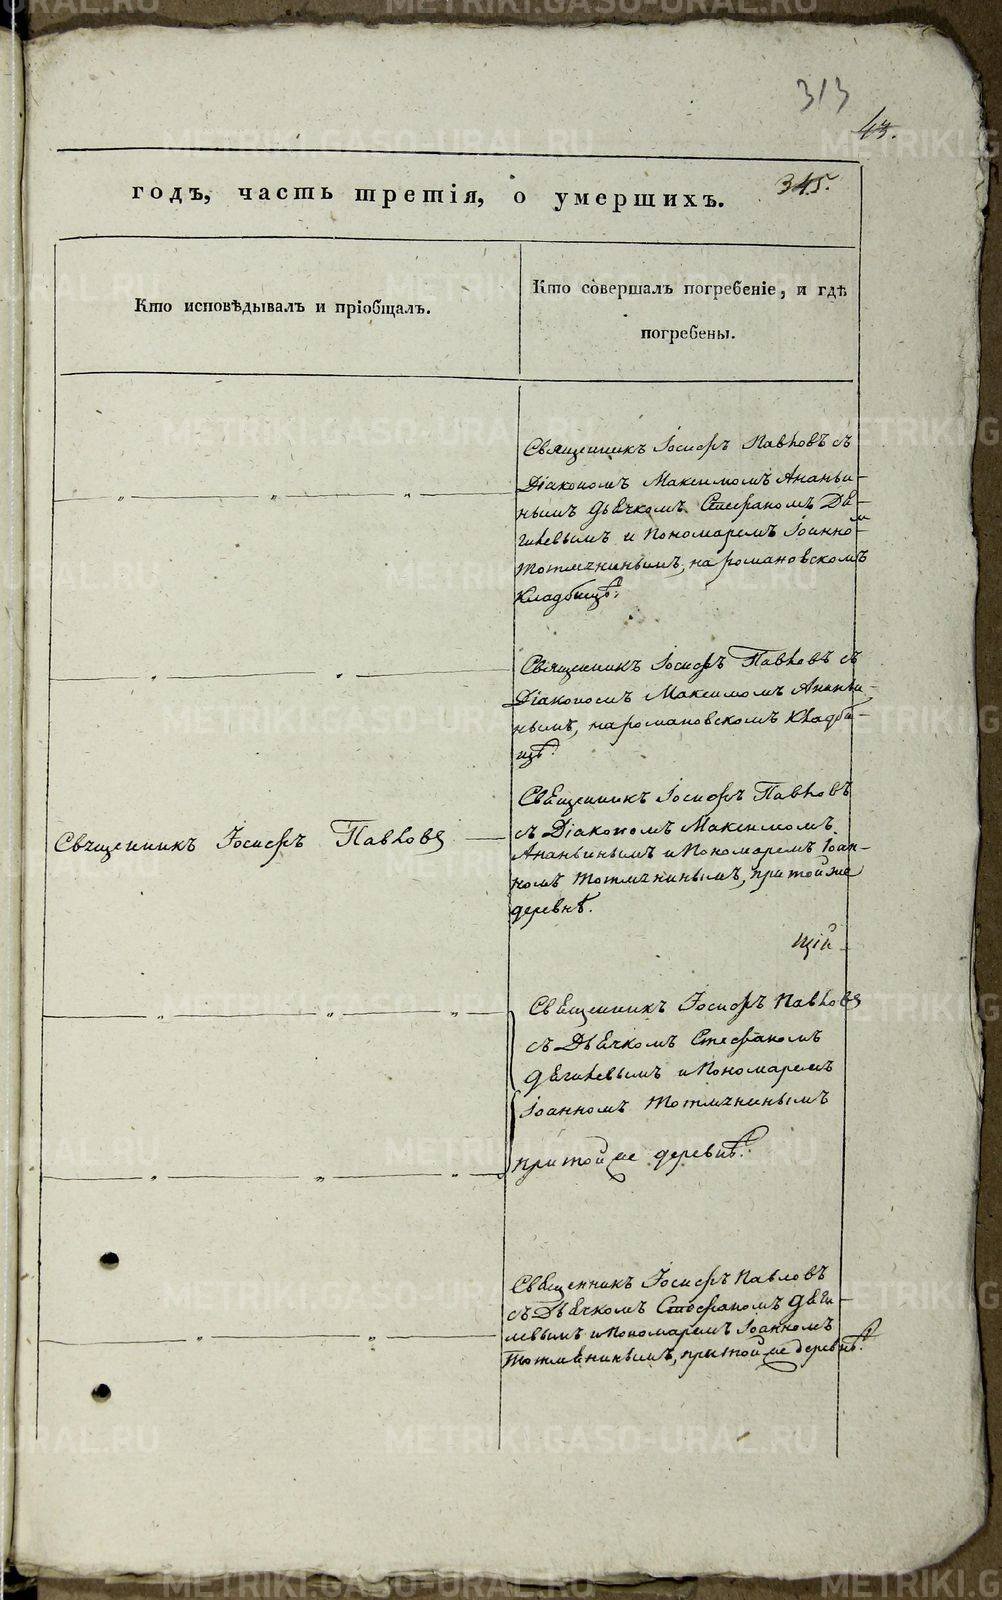 313
43.
345.
годъ, часть третія, о умершихъ.
Кто исповѣдывалъ и пріобщалъ.
Кто совершалъ погребеніе, и гдѣ
погребены.
Священникъ Іосифъ Павловъ съ
Діакономъ Максимомъ Ананьи-
нымъ дьячкомъ Стефаномъ Дя-
гилевымъ и Пономаремъ Іоанном
Тотмянинымъ, на романовскомъ
кладбищѣ.
Священникъ Іосифъ Павловъ съ
Діакономъ Максимомъ Ананьи-
нымъ, на романовскомъ кладби-
щѣ.
Священникъ Іосифъ Павловъ
Священникъ Іосифъ Павловъ
съ Діакономъ Максимомъ
Ананьинымъ и Пономаремъ Іоан-
номъ Тотмянинымъ, при той же
деревнѣ.
щій
Священникъ Іосифъ Павловъ
съ Дьячкомъ Стефаномъ
Дягилевымъ и Пономаремъ
Іоанномъ Тотмянинымъ
при той же деревнѣ.
Священникъ Іосифъ Павловъ
съ Дьячкомъ Стефаномъ Дяги-
левымъ и Пономаремъ Іоанномъ
Тотмянинымъ, при той же деревнѣ.
METRIKI.GASO-URAL.RU